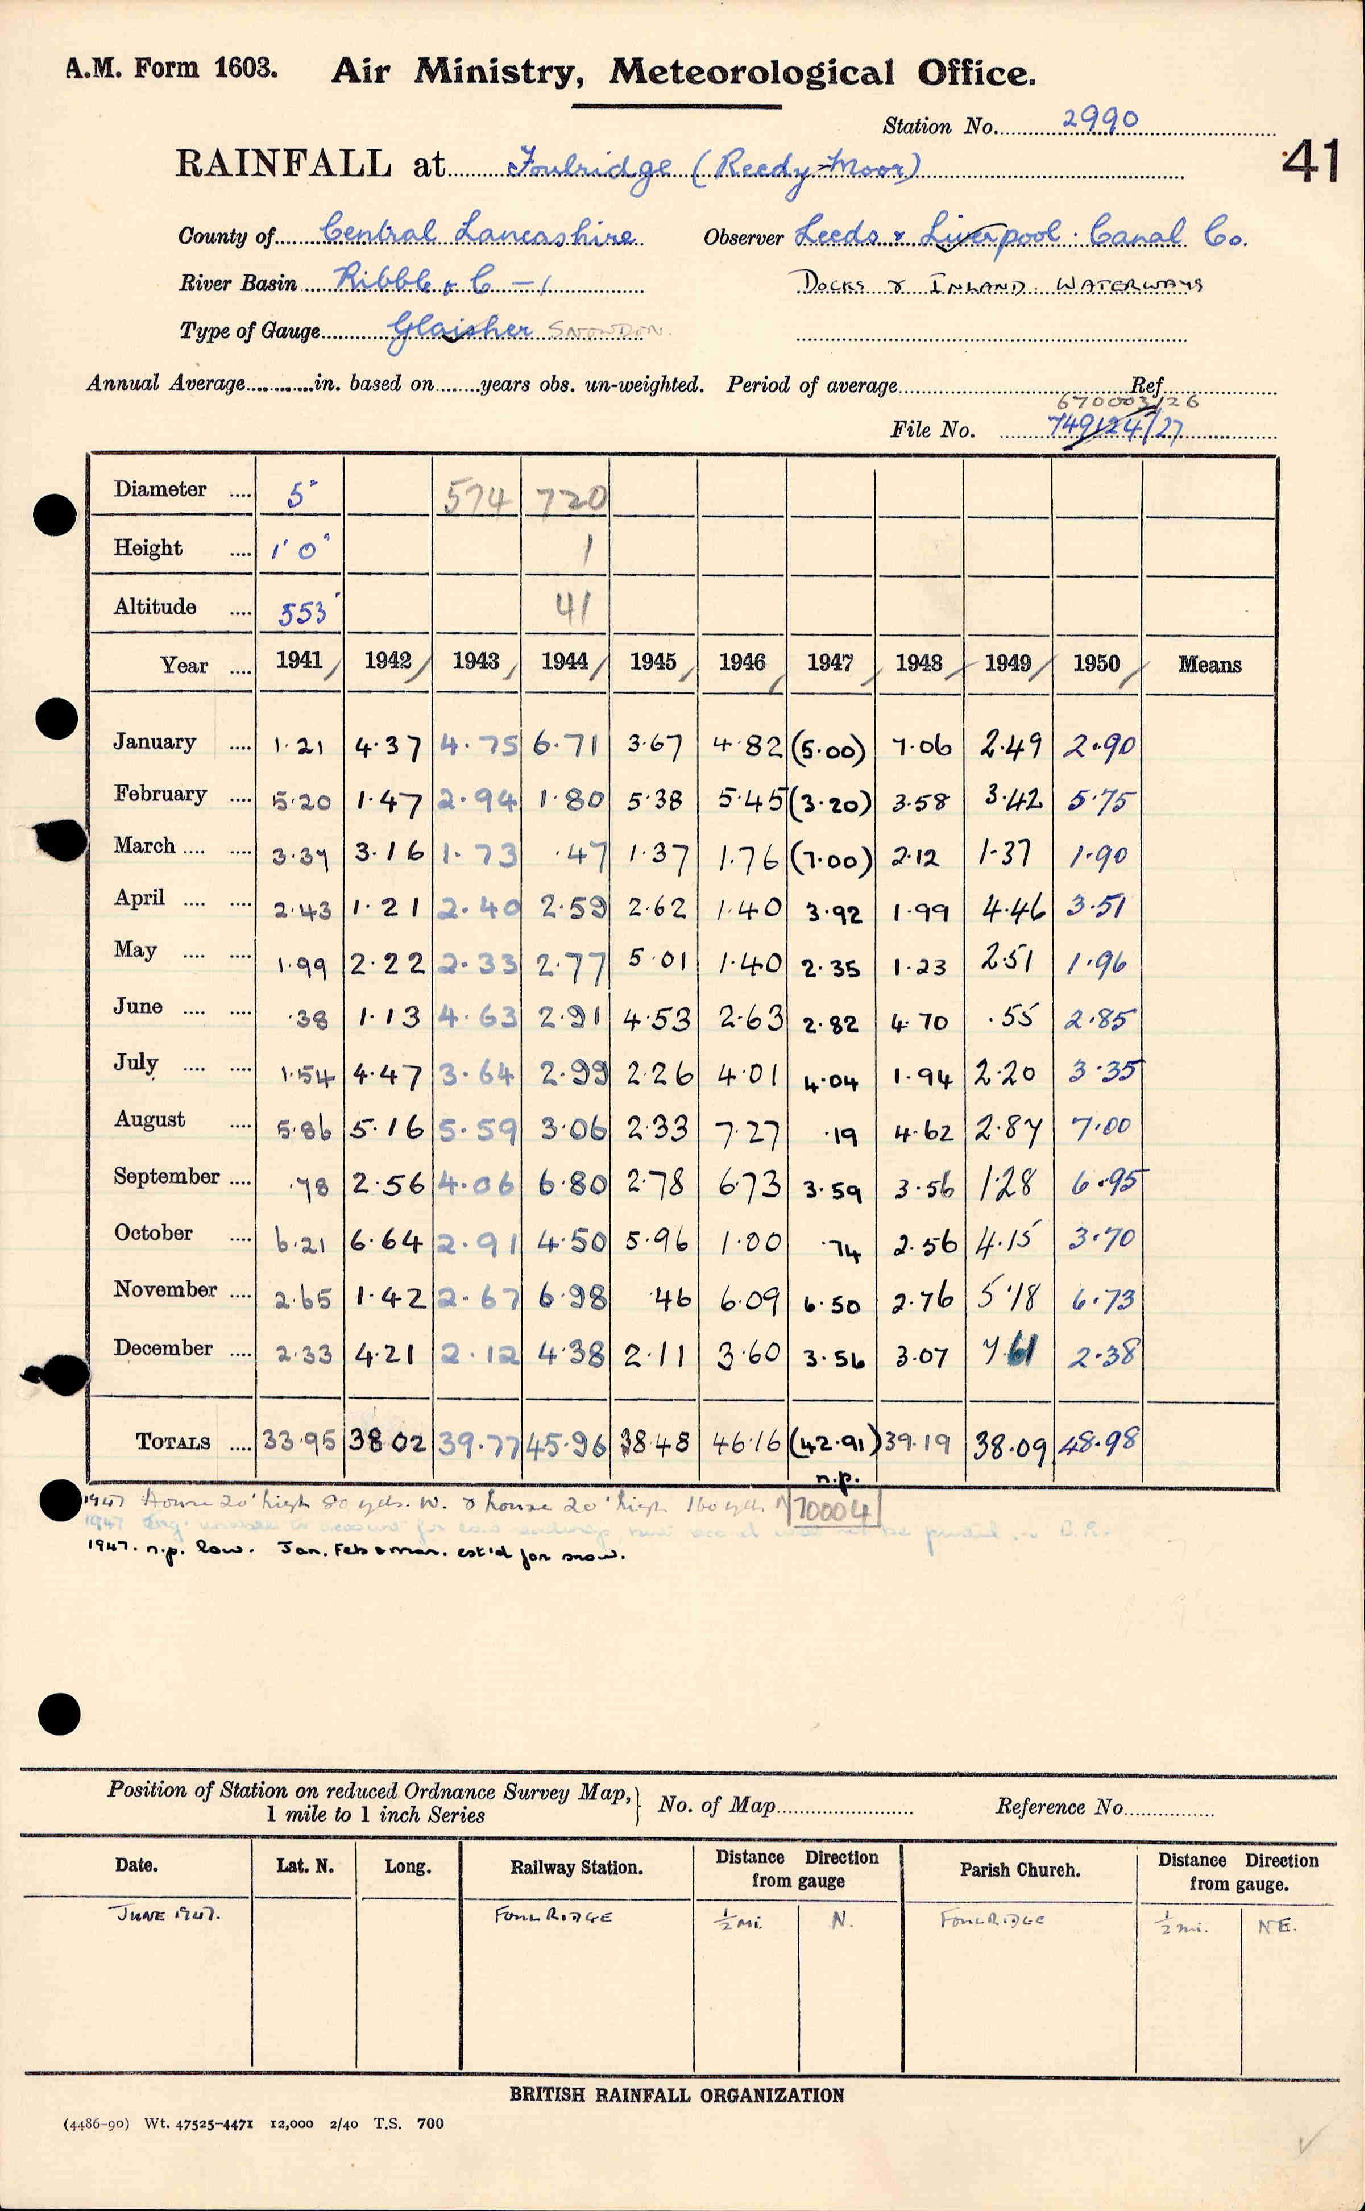 A.M. Form 1603. Air Ministry, Meteorological Office.
Station No. 2990
41
RAINFALL at Foulridge (Reedy Moor)
County of Central Lancashire Observer Leeds & Liverpool Canal Co.
River Basin Ribble & C –1 DOCKS & INLAND WATERWAYS
Type of Gauge Glaisher SNOWDON.
Annual Average in. based on years obs. un-weighted. Period of average Ref
670003/26
File No. 749124/27
Diameter 5" 574 720
Height 1' 0" 1
Altitude 553' 41
Year 1941 1942 1943 1944 1945 1946 1947 1948 1949 1950 Means
January 1.21 4.37 4.75 6.71 3.67 4.82 (5.00) 7.06 2.49 2.90
February 5.20 1.47 2.94 1.80 5.38 5.45 (3.20) 3.58 3.42 5.75
March 3.37 3.16 1.73 .47 1.37 1.76 (7.00) 2.12 1.37 1.90
April 2.43 1.21 2.40 2.59 2.62 1.40 3.92 1.99 4.46 3.51
May 1.99 2.22 2.33 2.77 5.01 1.40 2.35 1.23 2.51 1.96
June .38 1.13 4.63 2.91 4.53 2.63 2.82 4.70 .55 2.85
July 1.54 4.47 3.64 2.99 2.26 4.01 4.04 1.94 2.20 3.35
August 5.86 5.16 5.59 3.06 2.33 7.27 .19 4.62 2.87 7.00
September .78 2.56 4.06 6.80 2.78 6.73 3.59 3.56 1.28 6.95
October 6.21 6.64 2.91 4.50 5.96 1.00 .74 2.56 4.15 3.70
November 2.65 1.42 2.67 6.98 .46 6.09 6.50 2.76 5.18 6.73
December 2.33 4.21 2.12 4.38 2.11 3.60 3.56 3.07 7.61 2.38
TOTALS 33.95 38.02 39.77 45.96 38.48 46.16 (42.91) 39.19 38.09 48.98
n.p.
1947 House 20' high 80 yds. W. & house 20' high 160 yds. N 70004
1947
1947. n.p. low. Jan. Feb & Mar. est'd for snow.
Position of Station on reduced Ordnance Survey Map,
1 mile to 1 inch Series No. of Map Reference No.
Date. Lat. N. Long. Railway Station. Distance from gauge Direction Parish Church. Distance from gauge. Direction
JUNE 1947. FOULRIDGE ½ mi. N. FOULRIDGE ½ mi. NE.
BRITISH RAINFALL ORGANIZATION
(4486-90) Wt. 47525-4471 12,000 2/40 T.S. 700